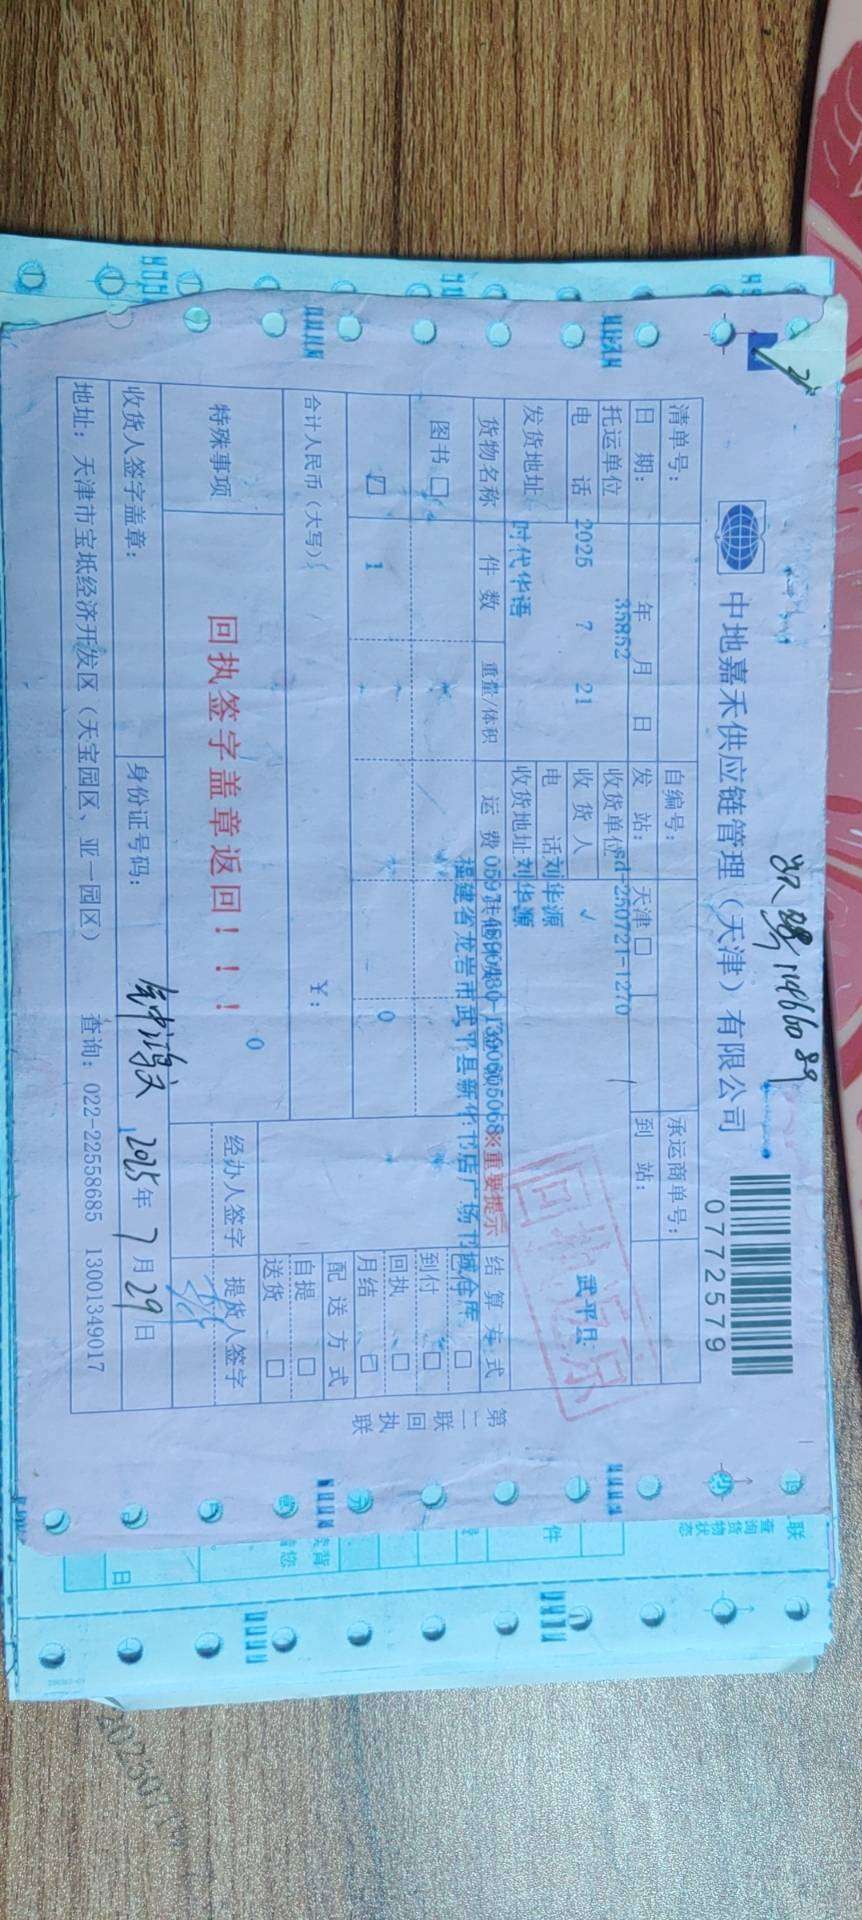 中地嘉禾供应链管理（天津）有限公司
0772579
清单号：
自编号：
承运商单号：
日 期：
年 月 日
35852
发 站：
天津□
到 站：
托运单位
2025 7 21
收货单位
sd-250721-1270
武平县
电 话
收 货 人
√
发货地址
时代华语
电 话
刘华源
收货地址
刘华源
福建省龙岩市武平县新华书店广场书城仓库
※重要提示
货物名称
件 数
重量/体积
运 费
结 算 方 式
图书 □
到付 □
1
0
回执 □
月结 □
合计人民币（大写）：
￥：
配 送 方 式
自提 □
送货 □
特殊事项
回执签字盖章返回！！！
0
经办人签字
提货人签字
收货人签字盖章：
身份证号码：
2025年 7 月 29 日
地址：天津市宝坻经济开发区（天宝园区、亚一园区）
查询：022-22558685 13001349017
第二联 回执联